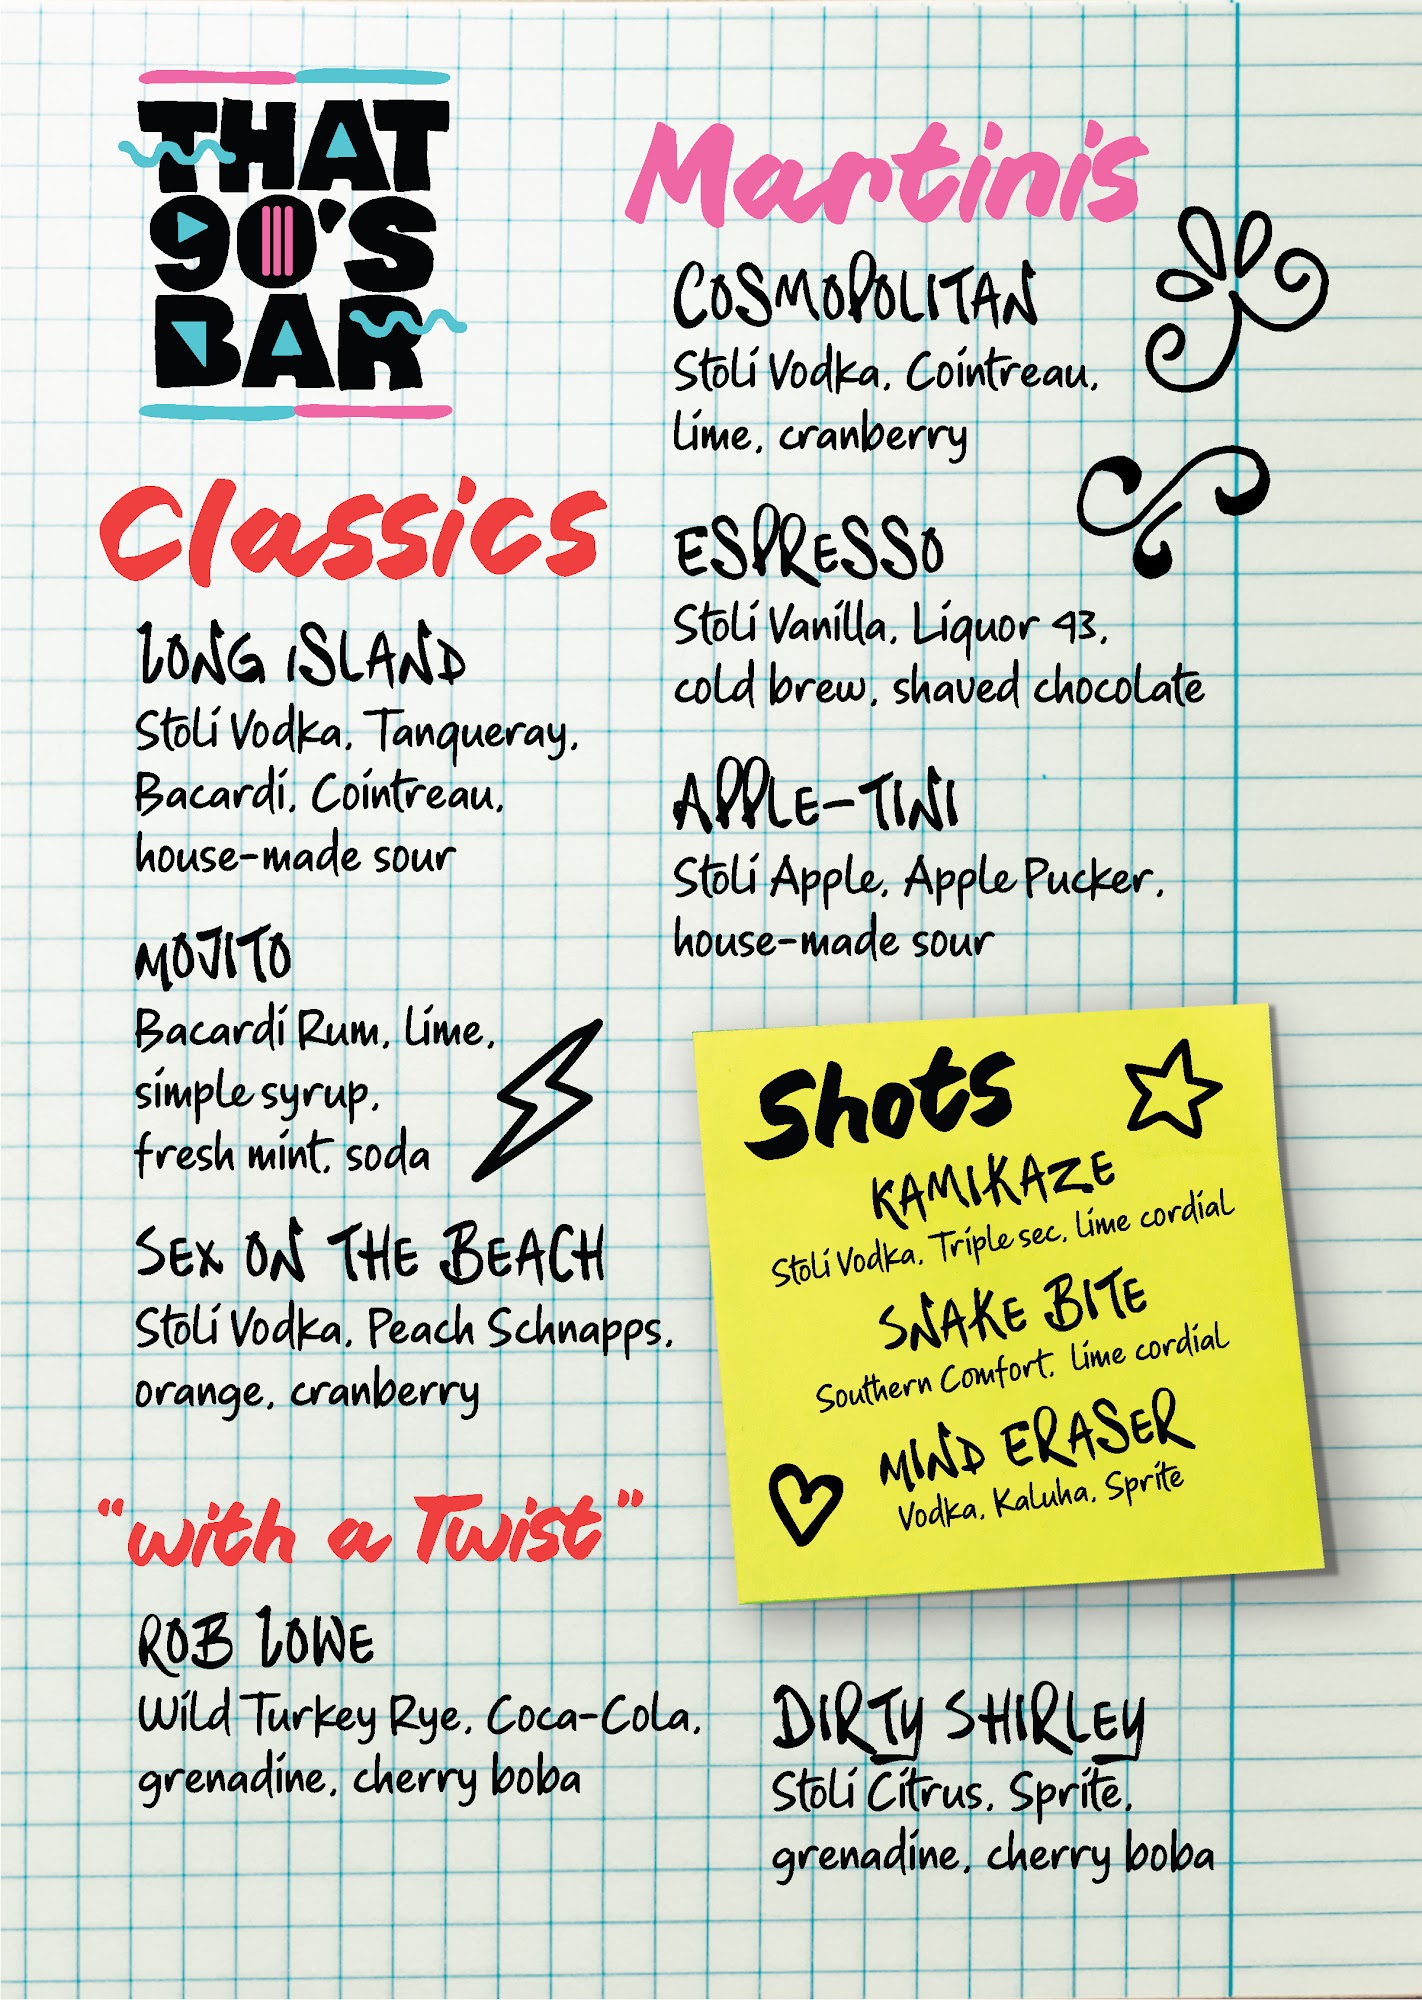 THAT
90'S
BAR
Classics
LONG ISLAND
Stoli Vodka, Tanqueray,
Bacardi, Cointreau,
house-made sour
MOJITO
Bacardi Rum, lime,
simple syrup,
fresh mint, soda
SEX ON THE BEACH
Stoli Vodka, Peach Schnapps,
orange, cranberry
"with a Twist"
ROB LOWE
Wild Turkey Rye, Coca-Cola,
grenadine, cherry boba
Martinis
COSMOPOLITAN
Stoli Vodka, Cointreau,
lime, cranberry
ESPRESSO
Stoli Vanilla, Liquor 43,
cold brew, shaved chocolate
APPLE-TINI
Stoli Apple, Apple Pucker,
house-made sour
Shots
KAMIKAZE
Stoli Vodka, Triple sec, lime cordial
SNAKE BITE
Southern Comfort, lime cordial
MIND ERASER
Vodka, Kaluha, Sprite
DIRTY SHIRLEY
Stoli Citrus, Sprite,
grenadine, cherry boba